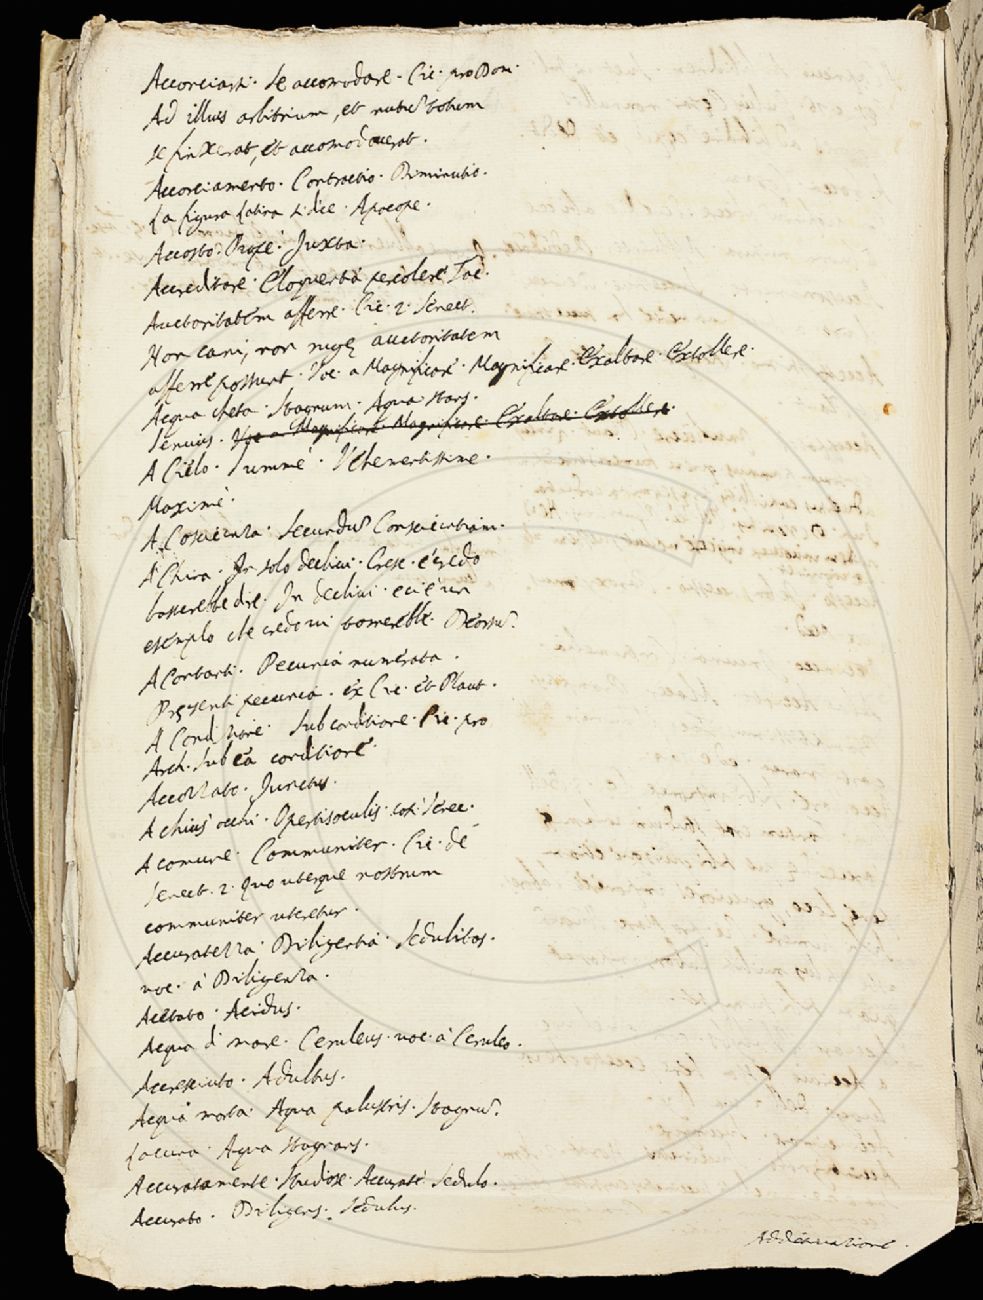 Acconciarsi. Se accomodare. Cic. pro Dom.
Ad illius arbitrium, et nutũ totum
se finxerat, et accomodaverat.
Accorciamento. Contractio. Diminutio.
La figura latina si dice. Apocope.
Accosto. Propè. Juxta.
Accreditare. Eloquentiã percolere Tac.
Auctoritatem afferre. Cic. 2. Senect.
Non cani, non rugę auctoritatem
afferre possunt. Voc. a Magnificare. Magnificare. Exaltare. Extollere.
Acqua cheta. Stagnum. Aqua stans.
Senuis. Voc a Magnificare. Magnificare. Exaltare. Extollere.
A Cielo. Summè. Vehementissime.
Maximè.
A Coscienza. Secundũ Conscientiam.
A China. In solo declivi. Cresc. e credo
basterebbe dire. In declivi. e ci è un
esempio che credo vi tornerebbe. Deorsũ.
A Contanti. Pecunia numerata.
Pręsenti pecunia. ex Cic. et Plaut.
A Condizione. Sub conditione. Cic. pro
Arch. Sub ea conditione.
Accozzato. Junctus.
A chius' occhi. Opertis oculis. Senec.
A comune. Communiter. Cic. de
Senect. 2. quo uterque nostrum
communiter uteretur.
Accuratezza. Diligentia. Sedulitas.
voc. à Diligenza.
Acetato. Acidus.
Acqua di mare. Ceruleus. voc. à Ceruleo.
Accresciuto. Adultus.
Acqua morta. Aqua palustris. Stagnũ.
Lacuna. Aqua stagnans.
Accuratamente. Studiose. Accuratè. Sedulo.
Accurato. Diligens. Sedulus.